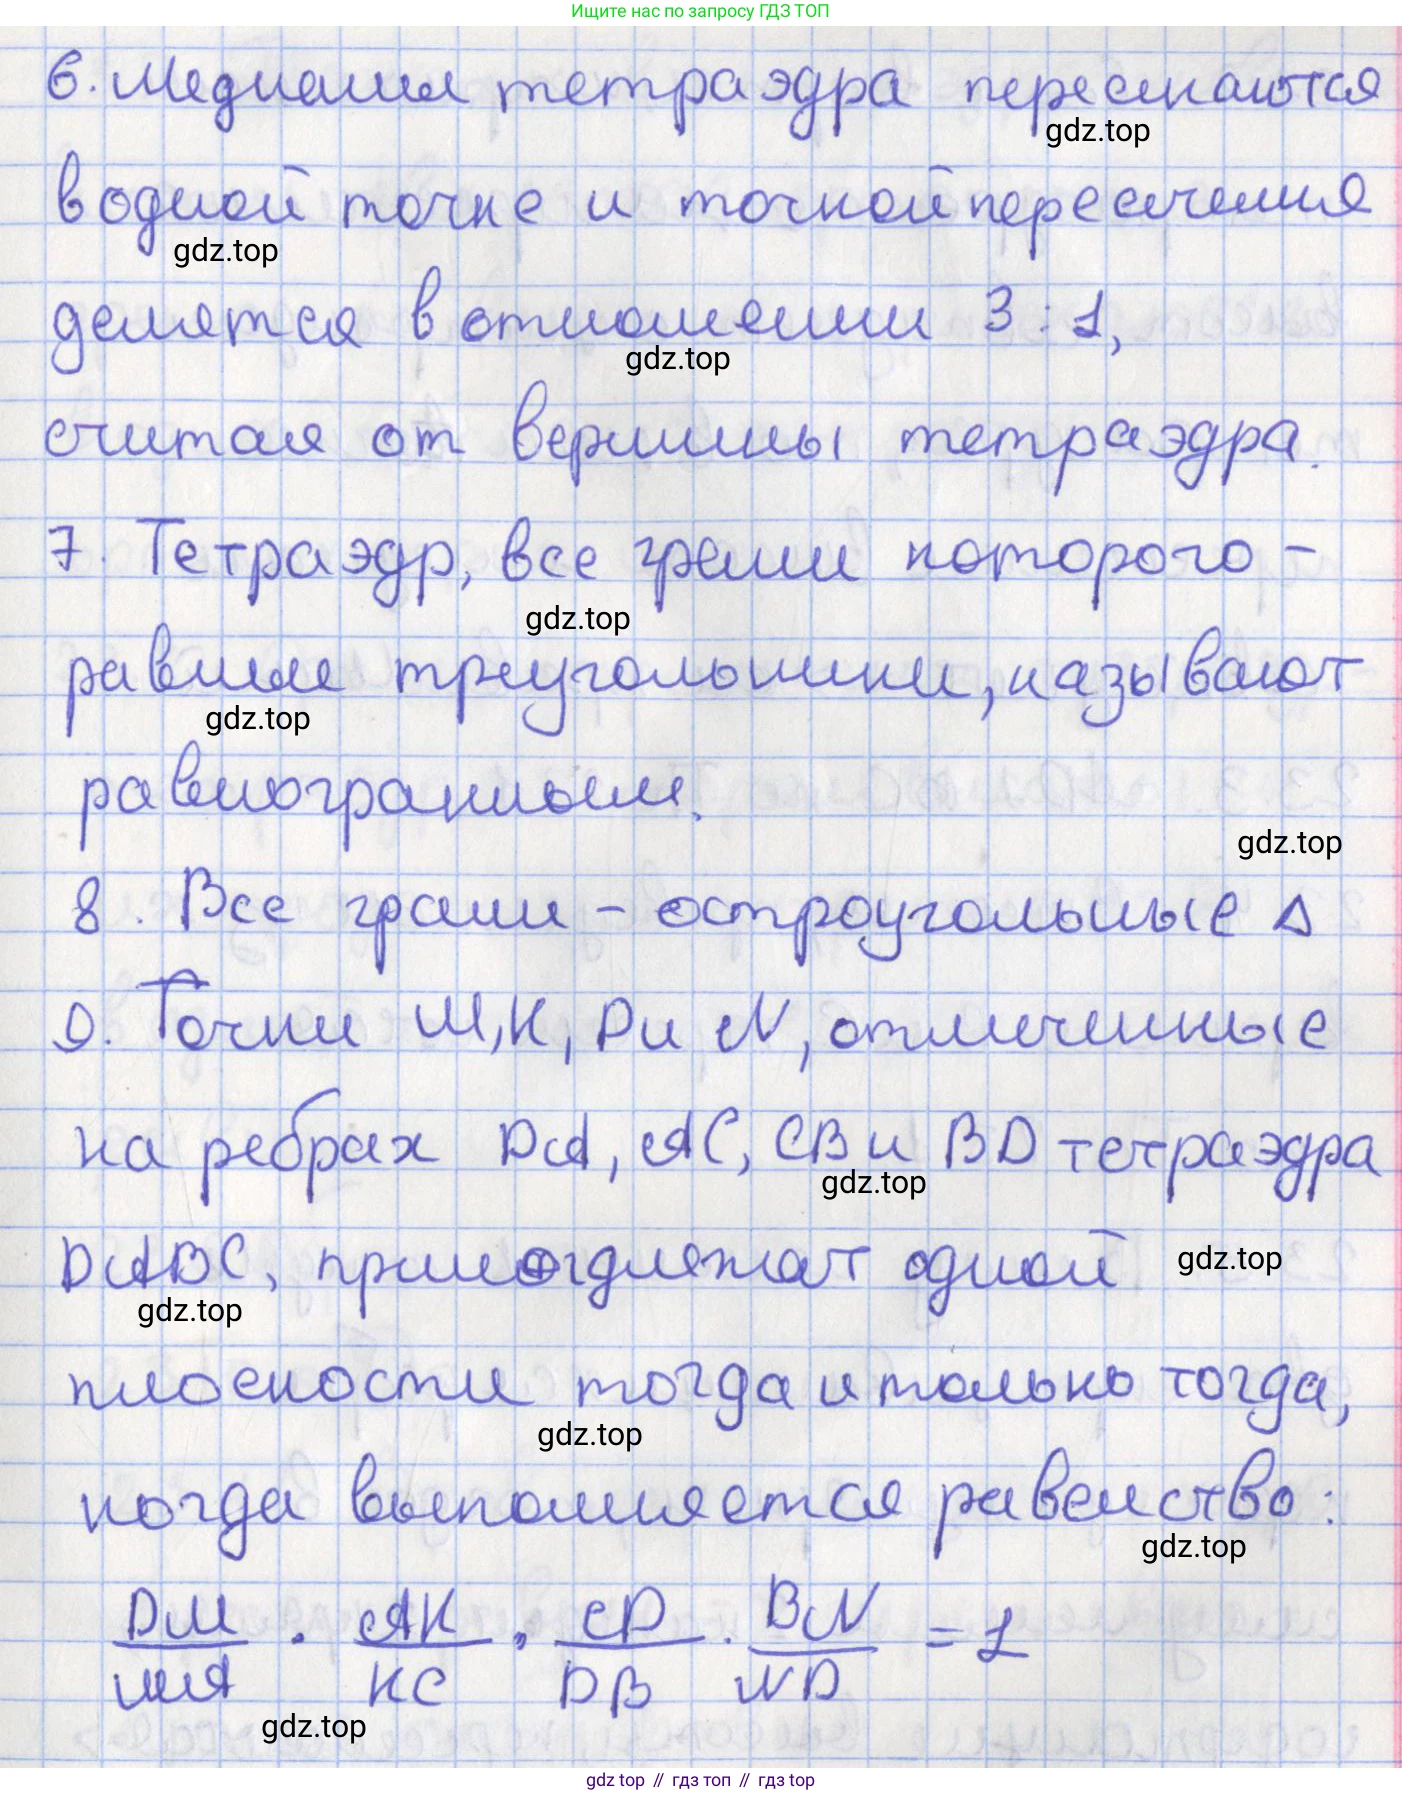 Ищите нас по запросу ГДЗ ТОП
6. Медианы тетраэдра пересекаются
gdz.top
в одной точке и точкой пересечения
gdz.top
делятся в отношении 3 : 1,
gdz.top
считая от вершины тетраэдра.
7. Тетраэдр, все грани которого -
gdz.top
равные треугольники, называют
gdz.top
равногранным.
gdz.top
8. Все грани - остроугольные Δ
9. Точки M, K, P и N, отмеченные
на ребрах DA, AC, CB и BD тетраэдра
gdz.top
DABC, принадлежат одной
gdz.top
gdz.top
плоскости тогда и только тогда,
gdz.top
когда выполняется равенство:
gdz.top
DM/MA · AK/KC · CP/PB · BN/ND = 1
gdz.top
gdz top // гдз топ // gdz top